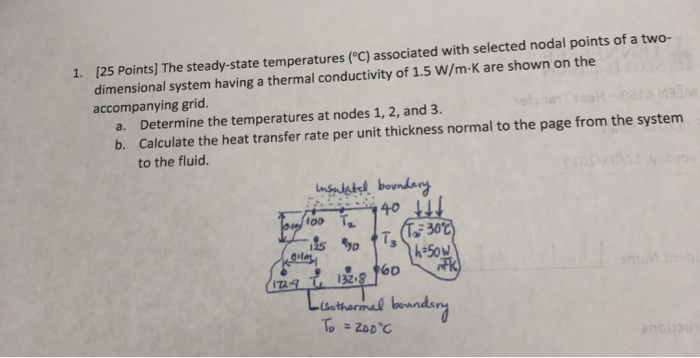 1. [25 Points] The steady-state temperatures (°C) associated with selected nodal points of a two-
dimensional system having a thermal conductivity of 1.5 W/m·K are shown on the
accompanying grid.
a. Determine the temperatures at nodes 1, 2, and 3.
b. Calculate the heat transfer rate per unit thickness normal to the page from the system
to the fluid.
Insulated boundary
100 T2 40
T∞=30°C
125 90 T3
h=50W
m²K
172.9 T1 132.8 60
Isothermal boundary
T0 = 200°C